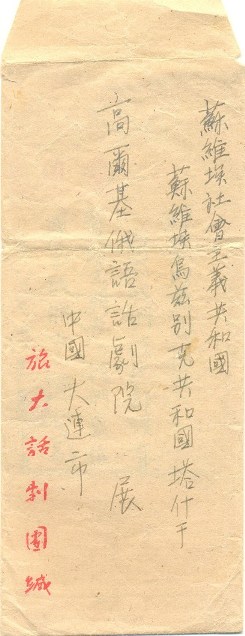 蘇維埃社會主義共和國
蘇維埃烏茲別克共和國塔什干
高爾基俄語話劇院 展
中國 大連市
旅大話剧團緘